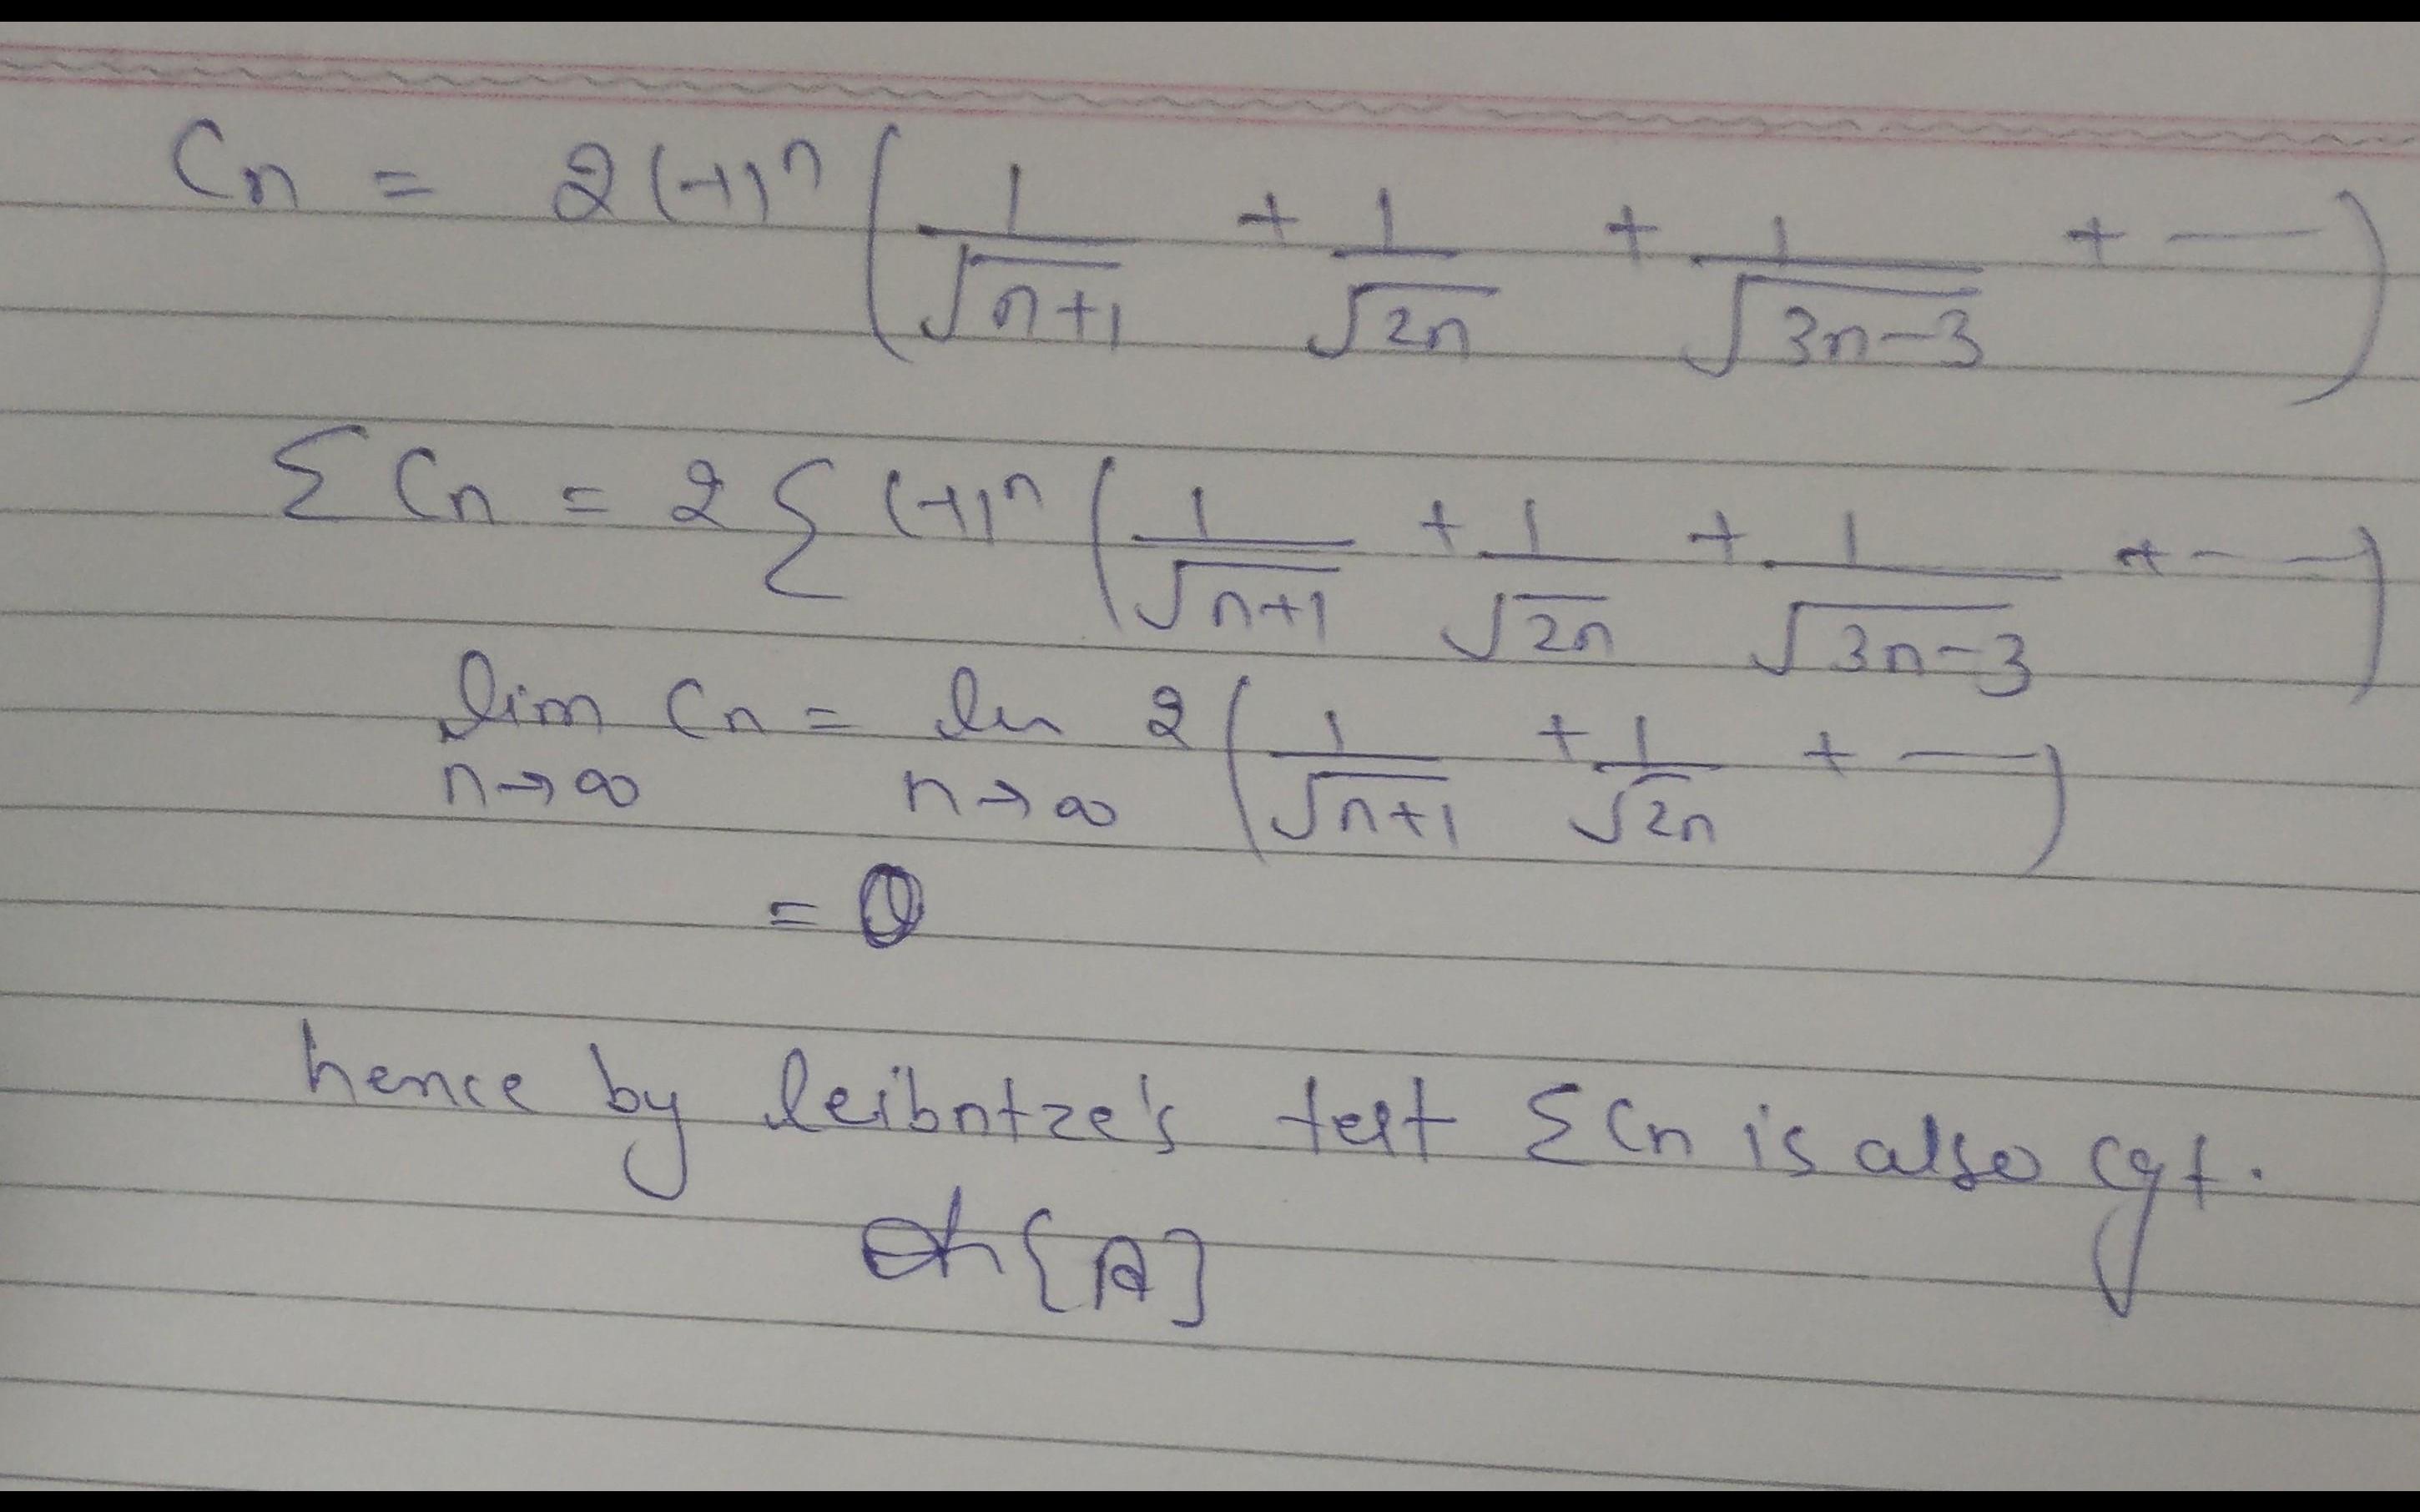 Cn = 2(-1)^n ( 1/√(n+1) + 1/√(2n) + 1/√(3n-3) + — )
Σ Cn = 2 Σ (-1)^n ( 1/√(n+1) + 1/√(2n) + 1/√(3n-3) + - — )
lim n→∞ Cn = lim n→∞ 2 ( 1/√(n+1) + 1/√(2n) + — )
= 0
hence by leibntze's test Σ Cn is also cgt.
{A}